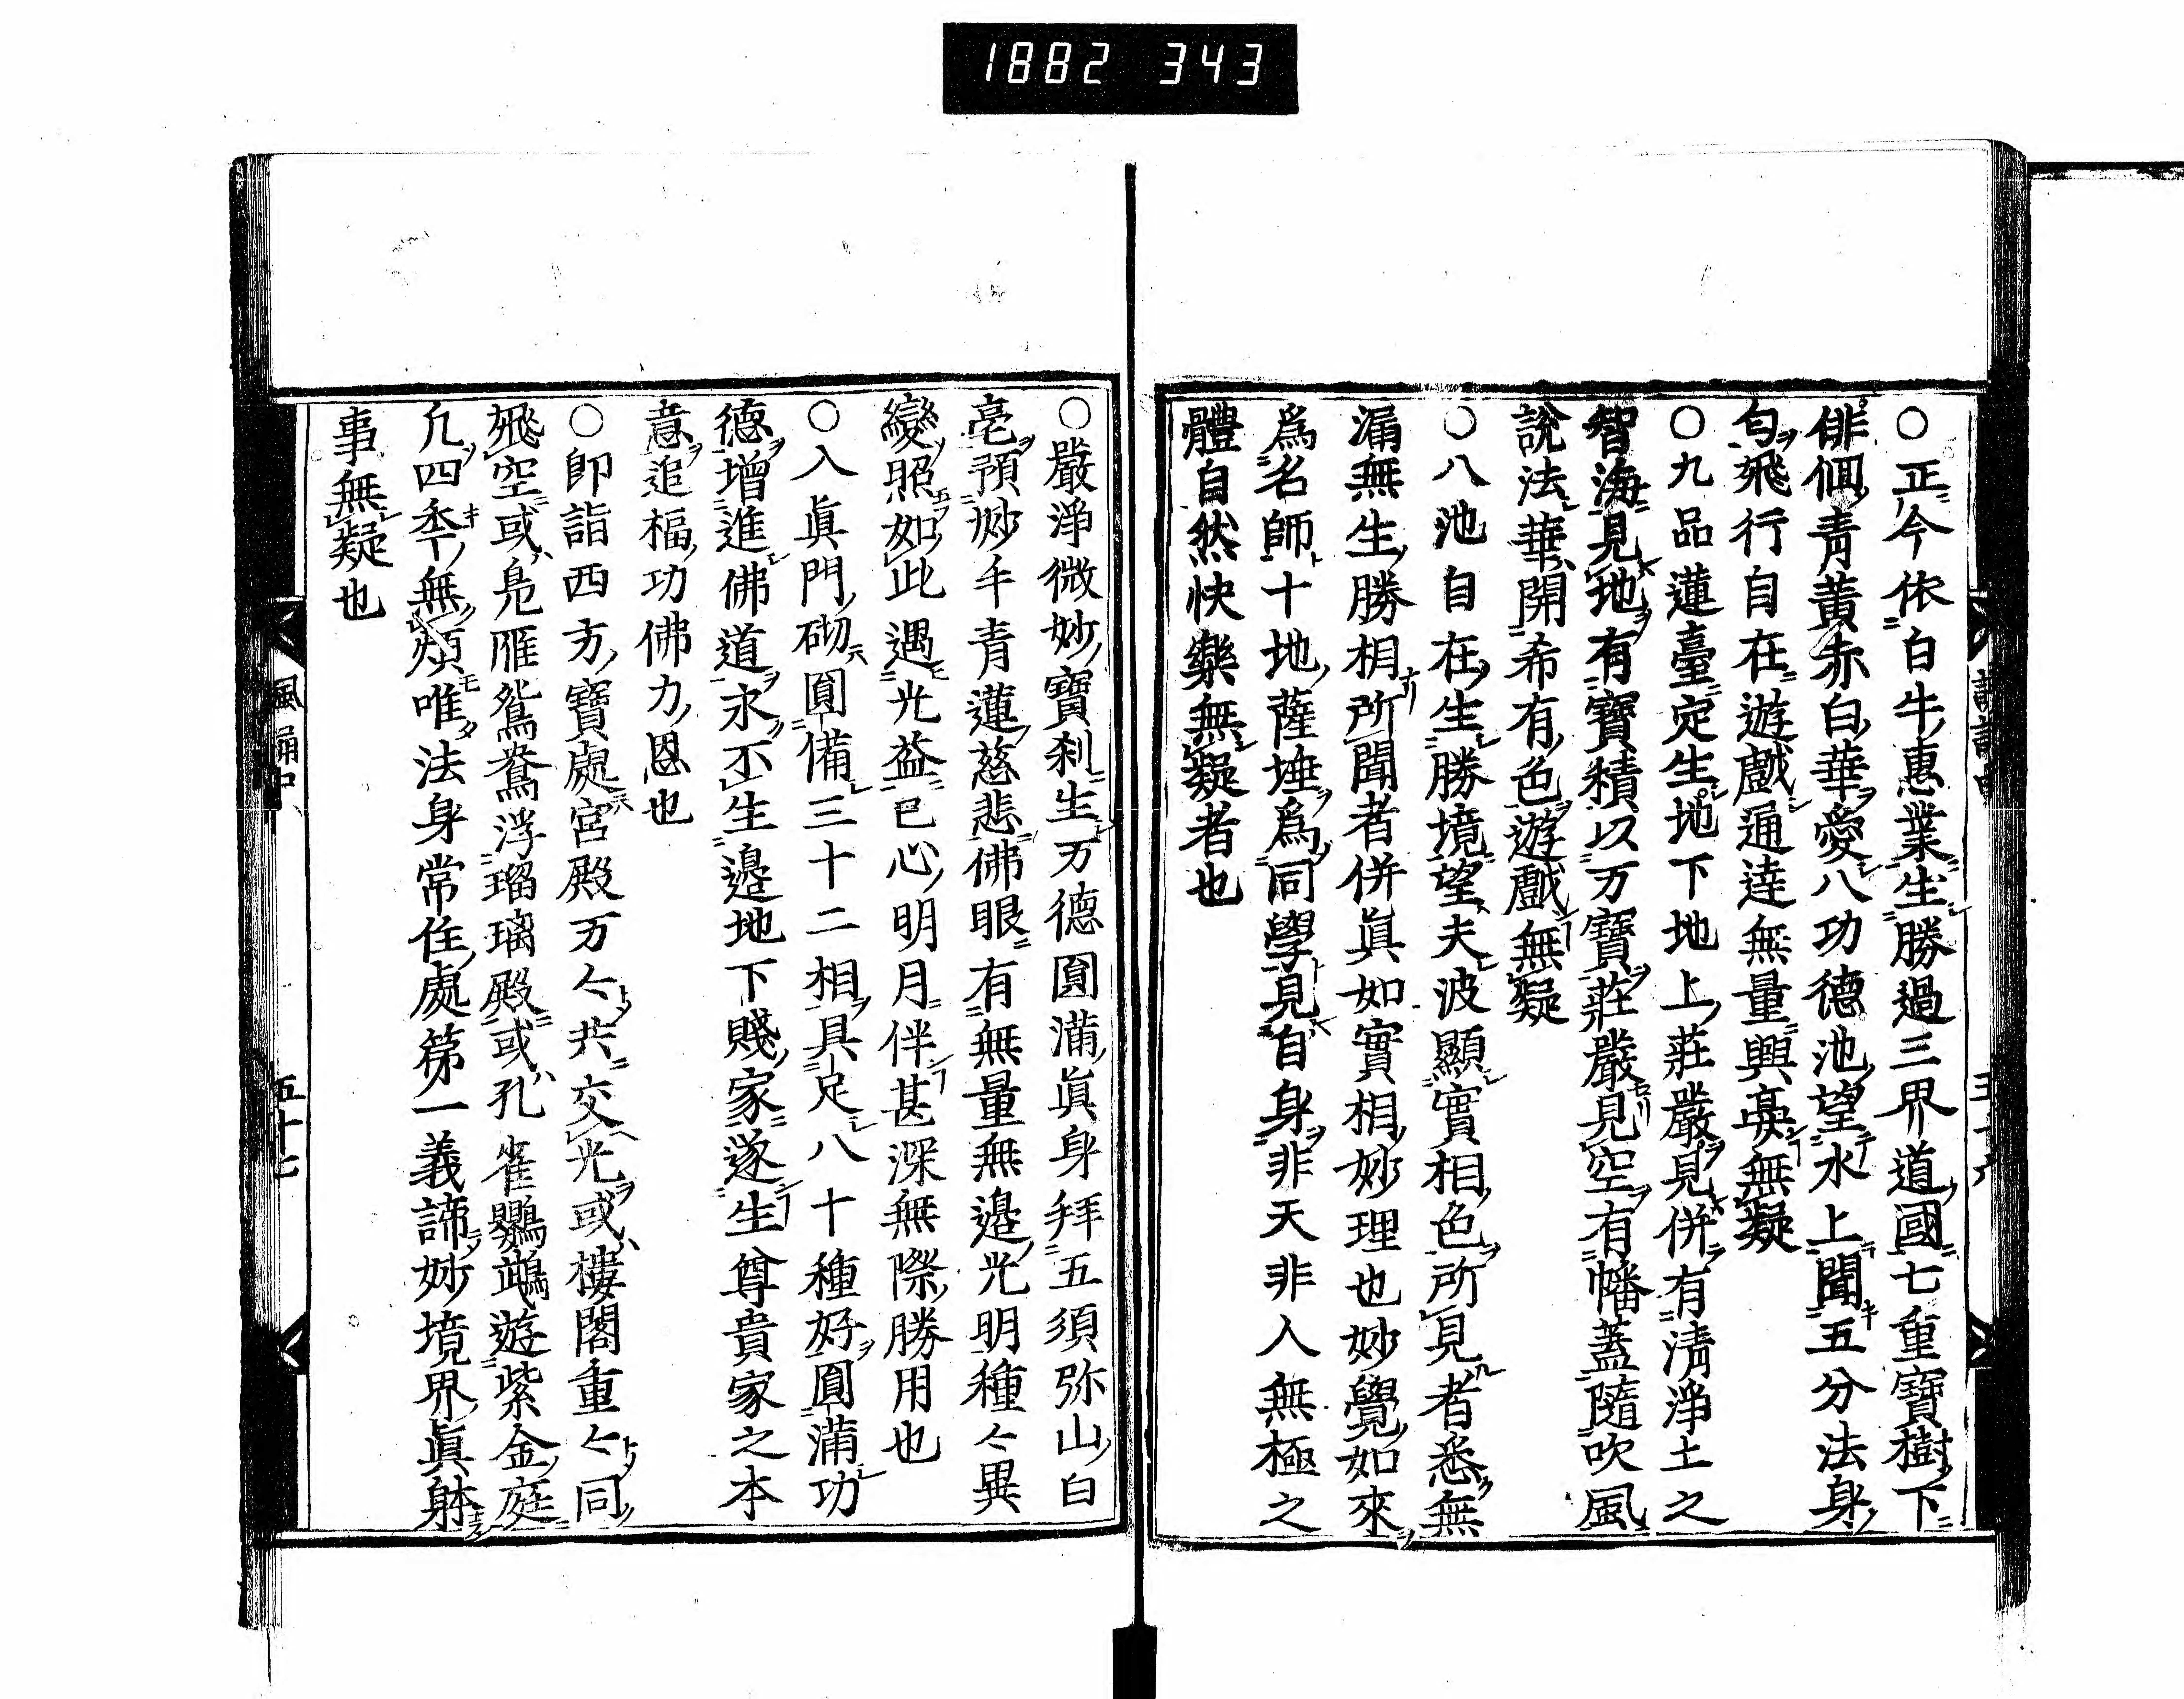 1882 343
〇正今依白牛惠業生勝過三界道國七重寶樹下
俳佪青黃赤白華愛八功德池望水上聞五分法身
匂飛行自在遊戲通達無量興㒵無疑
〇九品蓮臺定生地下地上莊嚴見併有淸淨土之
智海見地有寶積以万寶莊嚴見空有幡蓋隨吹風
說法華開希有色遊戲無疑
〇八池自在生勝境望夫波顯實相色所見者悉無
漏無生勝相所聞者併眞如實相妙理也妙覺如來
爲名師十地薩埵爲同學見自身非天非人無極之
體自然快樂無疑者也
五十六
〇嚴淨微妙寶刹生万德圓滿眞身拜五須弥山白
毫預妙千靑蓮慈悲佛眼有無量無邊光明種〻異
變照如此遇光益已心明月伴甚深無際勝用也
〇入眞門砌圓備三十二相具足八十種好圓滿功
德增進佛道永不生邊地下賤家遂生尊貴家之本
意追福功佛力恩也
〇卽詣西方寶處宮殿万〻共交光或樓閣重〻同
飛空或鳬雁鴛鴦浮瑠璃殿或孔雀鸚鵡遊紫金庭
凡四季無煩唯法身常住處第一義諦妙境界眞躰
事無疑也
諷誦中
五十七